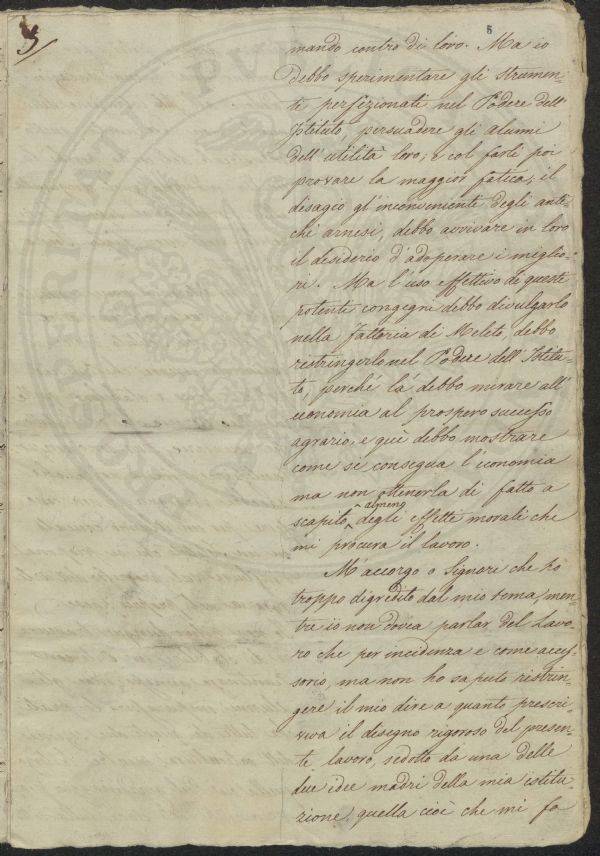 5
6
mando contro di loro. Ma io
debbo sperimentare gli strumen-
ti perfezionati nel Podere dell'
Istituto, persuadere gli alunni
dell'utilità loro, e col farli poi
provare la maggior fatica, il
disagio gl'inconveniente degli anti-
chi arnesi, debbo avvivare in loro
il desiderio d'adoperare i miglio-
ri. Ma l'uso effettivo de questi
potenti congegni debbo divulgarlo
nella Fattoria di Meleto, debbo
restringerlo nel Podere dell'Istitu-
to, perché là debbo mirare all'
economia al prospero successo
agrario, e quì debbo mostrare
come si consegua l'economia
ma non ottenerla di fatto a
scapito almeno degli effetti morali che
mi procura il lavoro.
M'accorgo o Signori che ho
troppo digredito dal mio tema, men-
tre io non dovea parlar del Lavo-
ro che per incidenza e come acces-
sorio, ma non ho saputo restrin-
gere il mio dire a quanto prescri-
veva il disegno rigoroso del presen-
te lavoro, sedotto da una delle
due idee madri della mia istitu-
zione, quella cioè che mi fa